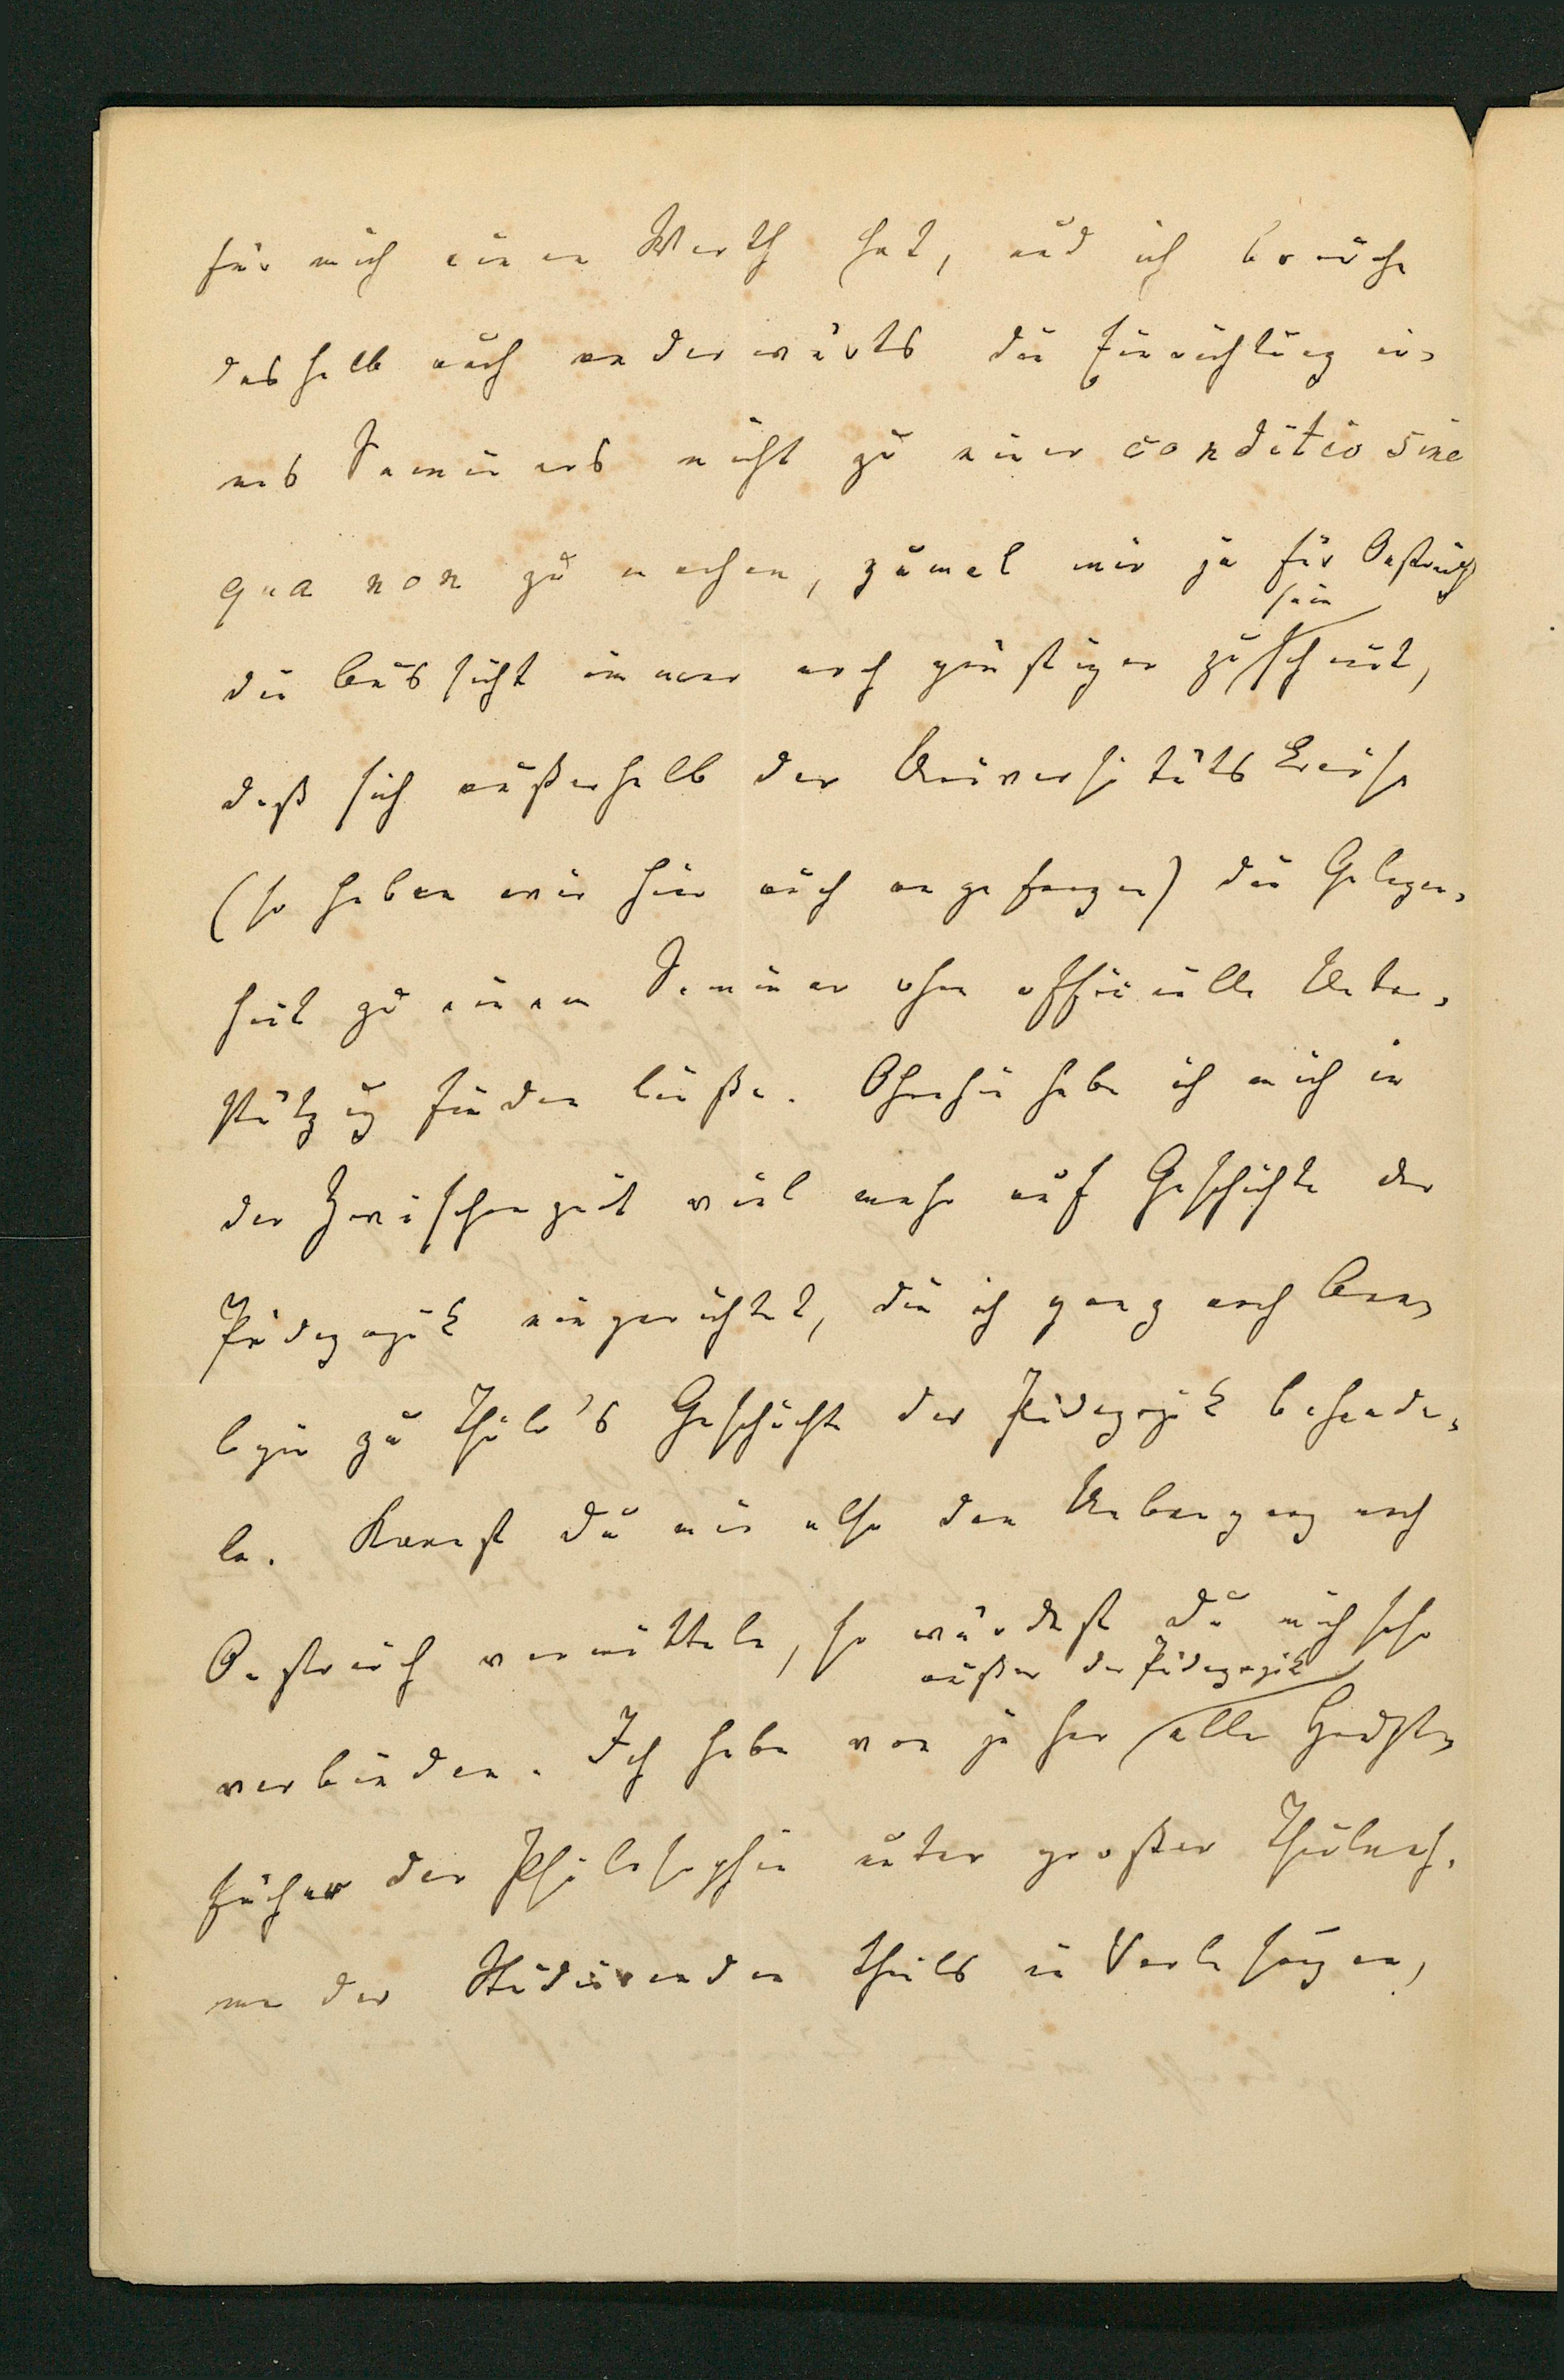 für mich einen Werth hat, und ich brauche
deshalb auch anderwärts die Einrichtung ei-
nes Seminars nicht zu einer conditio sine
qua non zu machen, zumal mir ja für Oestreich
sein
die Aussicht immer noch günstiger zu scheint,
daß sich außerhalb der Universitätskreise
(so haben wir hier auch angefangen) die Gelegen-
heit zu einem Seminar ohne officielle Unter-
stützung finden ließe. Ohnehin habe ich mich in
der Zwischenzeit viel mehr auf Geschichte der
Pädagogik eingerichtet, die ich ganz nach Ana-
logie zu Thilo's Geschichte der Pädagogik behande-
le. Kannst du mir also den Uebergang nach
Oestreich vermitteln, so würdest du mich sehr
außer der Pädagogik
verbinden. Ich habe von je her alle Hauptfä-
cher der Philosophie unter großer Theilnah-
me der Studirenden theils in Vorlesungen,